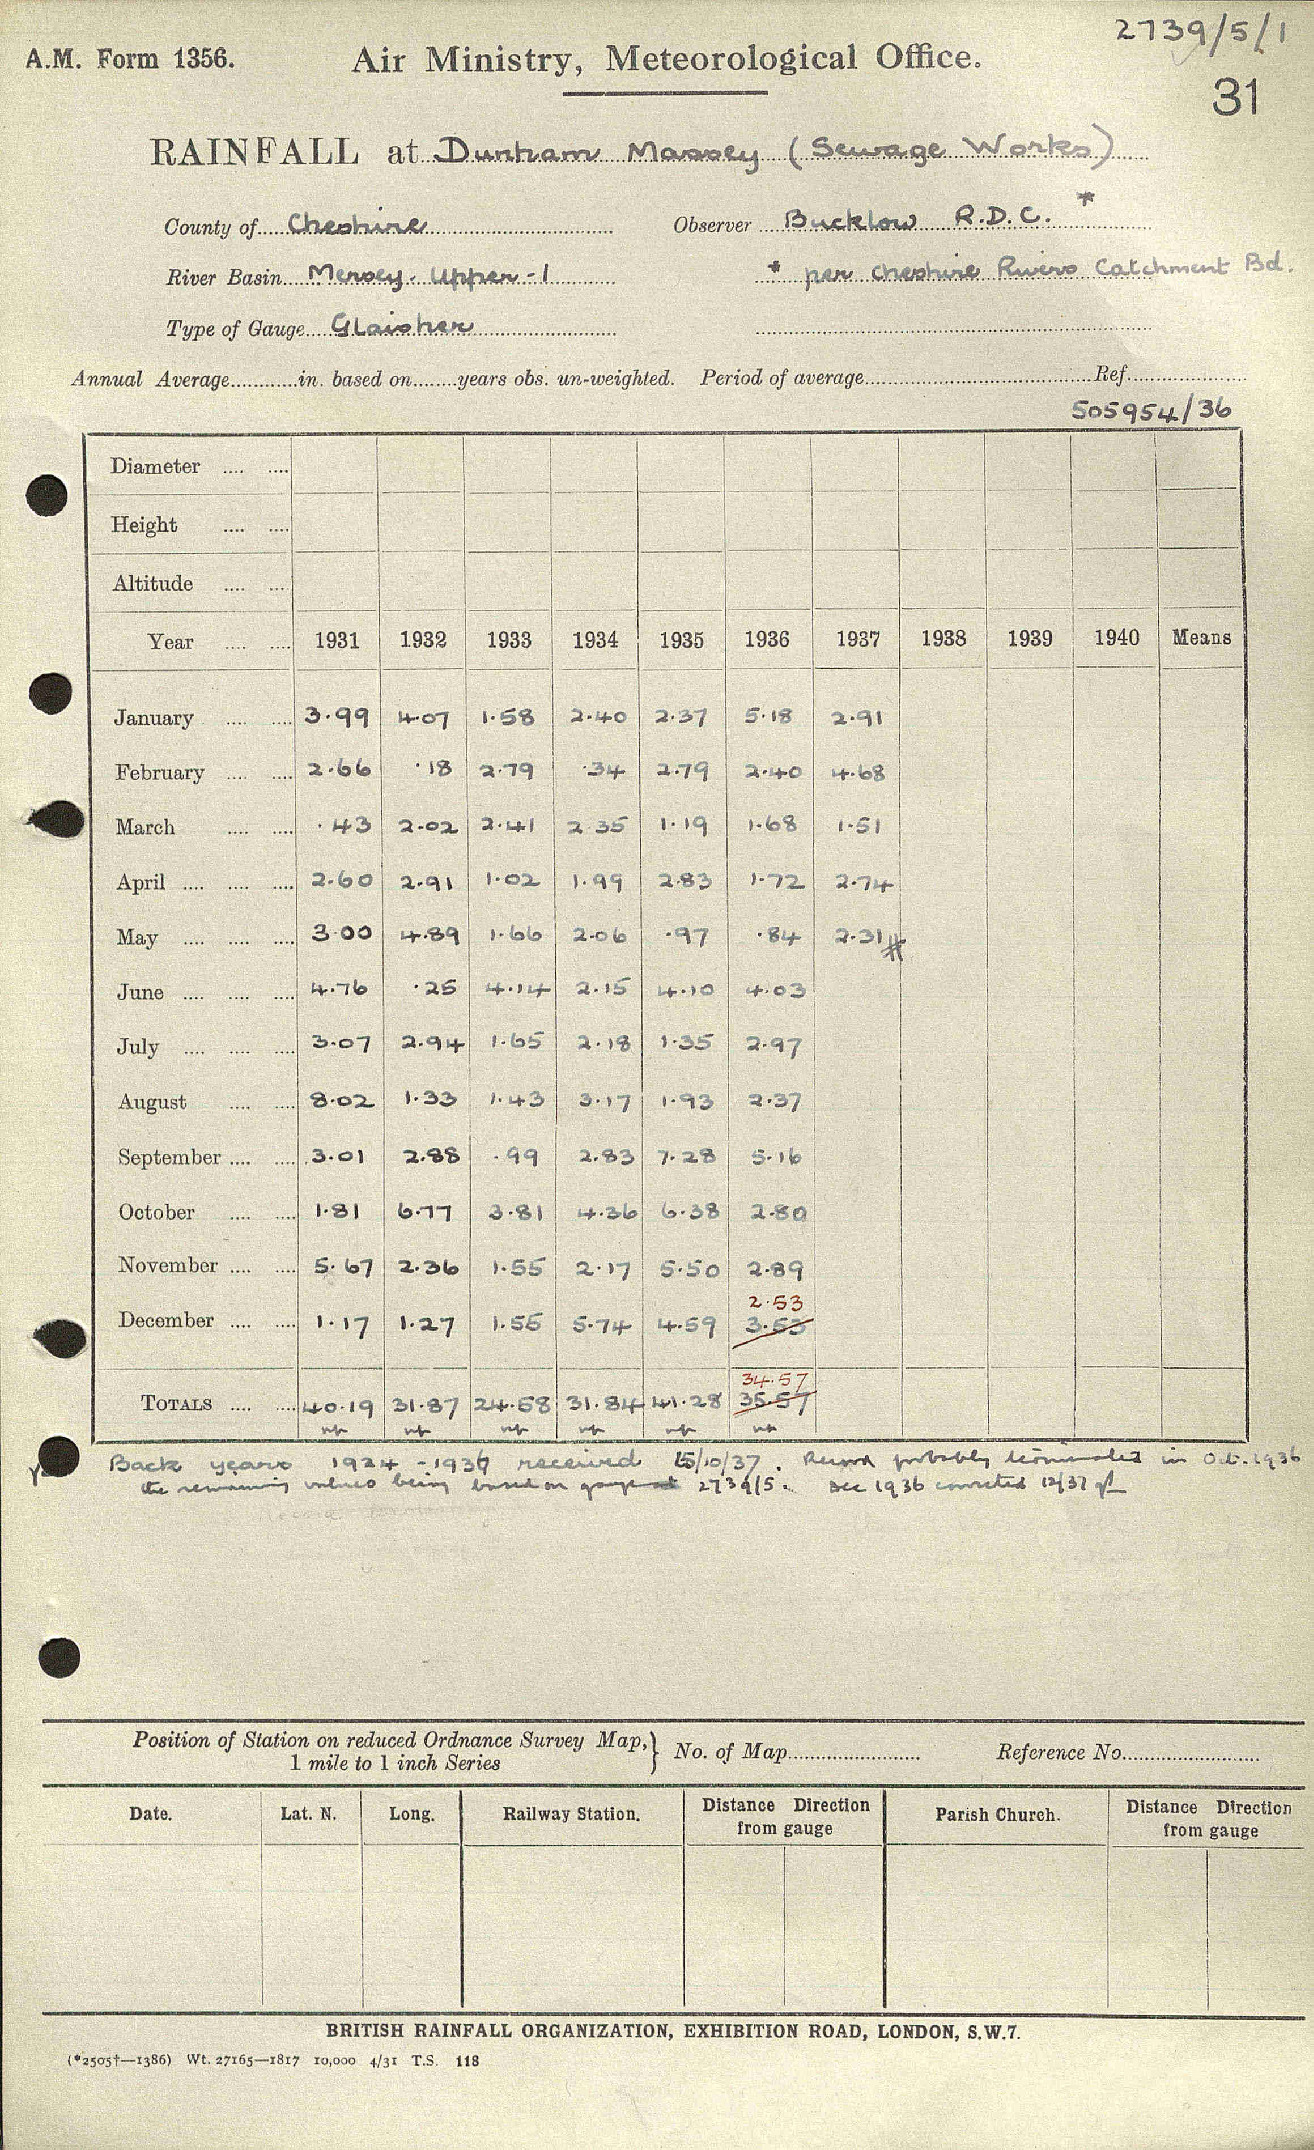 2739/5/1
A.M. Form 1356. Air Ministry, Meteorological Office.
31
RAINFALL at Dunham Massey (Sewage Works)
County of Cheshire Observer Bucklow R.D.C. *
River Basin Mersey. Upper-1 * per Cheshire Rivers Catchment Bd.
Type of Gauge Glaisher
Annual Average in. based on years obs. un-weighted. Period of average Ref.
505954/36
Diameter
Height
Altitude
Year 1931 1932 1933 1934 1935 1936 1937 1938 1939 1940 Means
January 3.99 4.07 1.58 2.40 2.37 5.18 2.91
February 2.66 .18 2.79 .34 2.79 2.40 4.68
March .43 2.02 2.41 2.35 1.19 1.68 1.51
April 2.60 2.91 1.02 1.99 2.83 1.72 2.74
May 3.00 4.89 1.66 2.06 .97 .84 2.31 #
June 4.76 .25 4.14 2.15 4.10 4.03
July 3.07 2.94 1.65 2.18 1.35 2.97
August 8.02 1.33 1.43 3.17 1.93 2.37
September 3.01 2.88 .99 2.83 7.28 5.16
October 1.81 6.77 3.81 4.36 6.38 2.80
November 5.67 2.36 1.55 2.17 5.50 2.89
2.53
December 1.17 1.27 1.55 5.74 4.59 3.53
34.57
TOTALS 40.19 31.87 24.58 31.84 41.28 35.57
Back years 1924 - 1936 received 15/10/37. Record probably terminated in Oct. 1936
the remaining values being based on gauge at 2739/5. Dec 1936 corrected 12/37
Position of Station on reduced Ordnance Survey Map, } No. of Map Reference No.
1 mile to 1 inch Series
Date. Lat. N. Long. Railway Station. Distance Direction from gauge Parish Church. Distance Direction from gauge
BRITISH RAINFALL ORGANIZATION, EXHIBITION ROAD, LONDON, S.W.7.
(*2505†—1386) Wt. 27165—1817 10,000 4/31 T.S. 118